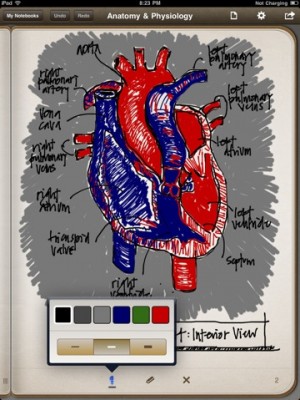 iPad
8:23 PM
Not Charging
My Notebooks
Undo
Redo
Anatomy & Physiology
aorta
left
pulmonary
artery
right
pulmonary
artery
left
pulmonary
veins
vena
cava
right
pulmonary
veins
left
atrium
right
atrium
left
ventricle
tricuspid
valve
septum
right
ventricle
: Interior View
1
2